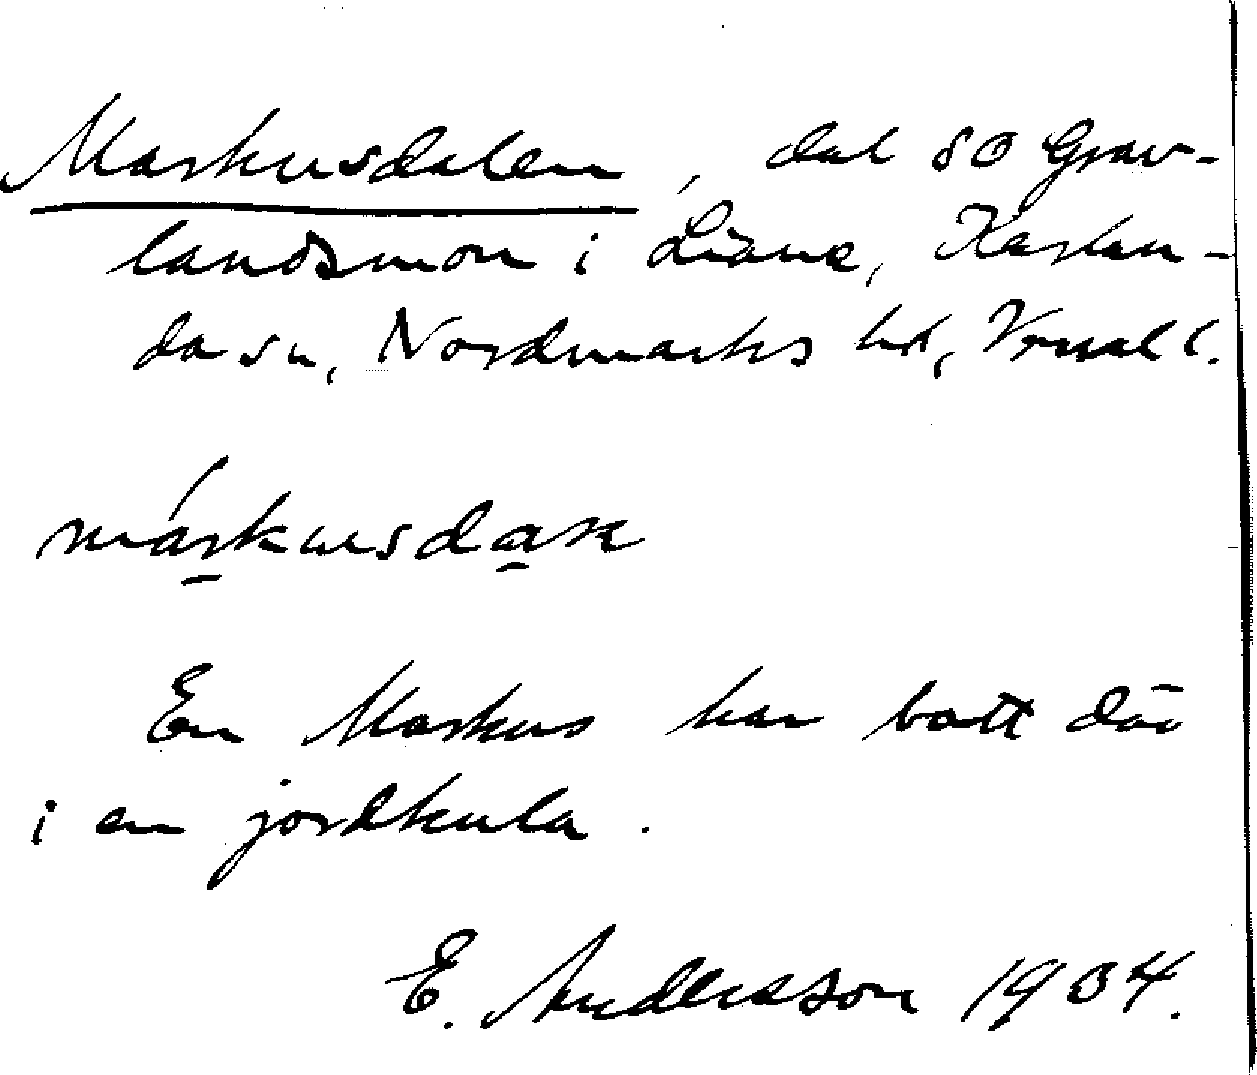 Markusdalen, dal SO Grav-
landsmon i Liane, Karlan-
da sn, Nordmarks hd, Vrml l.
márkusdaɴ
En Markus har bott där
i en jordkula.
E. Andersson 1904.